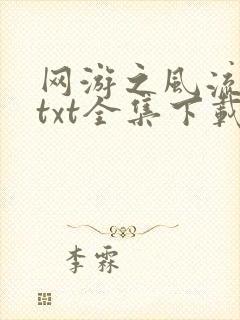 网游之风流
txt全集下载
李霖